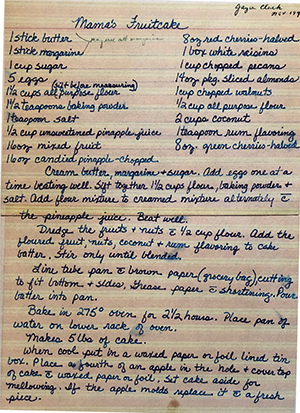 Mama's Fruitcake
1 stick butter
1 stick margarine
1 cup sugar
5 eggs (sift before measuring)
1 1/2 cups all purpose flour
1/4 teaspoons baking powder
1 teaspoon salt
1/2 cup unsweetened pineapple juice
16oz mixed fruit
16oz candied pineapple-chopped
8oz red cherries-halved
1 box white raisins
1 cup chopped pecans
14oz pkg. sliced almonds
1 cup chopped walnuts
1/2 cup all purpose flour
2 cups coconut
1 teaspoon rum flavoring
8oz. green cherries-halved
Cream butter, margarine & sugar. Add eggs one at a
time beating well. Sift together 1 1/2 cups flour, baking powder &
salt. Add flour mixture to creamed mixture alternately c̄
the pineapple juice. Beat well.
Dredge the fruits & nuts c̄ 1/2 cup flour. Add the
floured fruit, nuts, coconut & rum flavoring to cake
batter. Stir only until blended.
Line tube pan c̄ brown paper (grocery bag), cutting
to fit bottom & sides. Grease paper c̄ shortening. Pour
batter into pan.
Bake in 275° oven for 2 1/2 hours. Place pan of
water on lower rack of oven.
Makes 5 lbs of cake.
When cool put in a waxed paper or foil lined tin
box. Place a fourth of an apple in the hole & cover top
of cake c̄ waxed paper or foil. Set cake aside for
mellowing. If the apple molds replace it c̄ a fresh
piece.